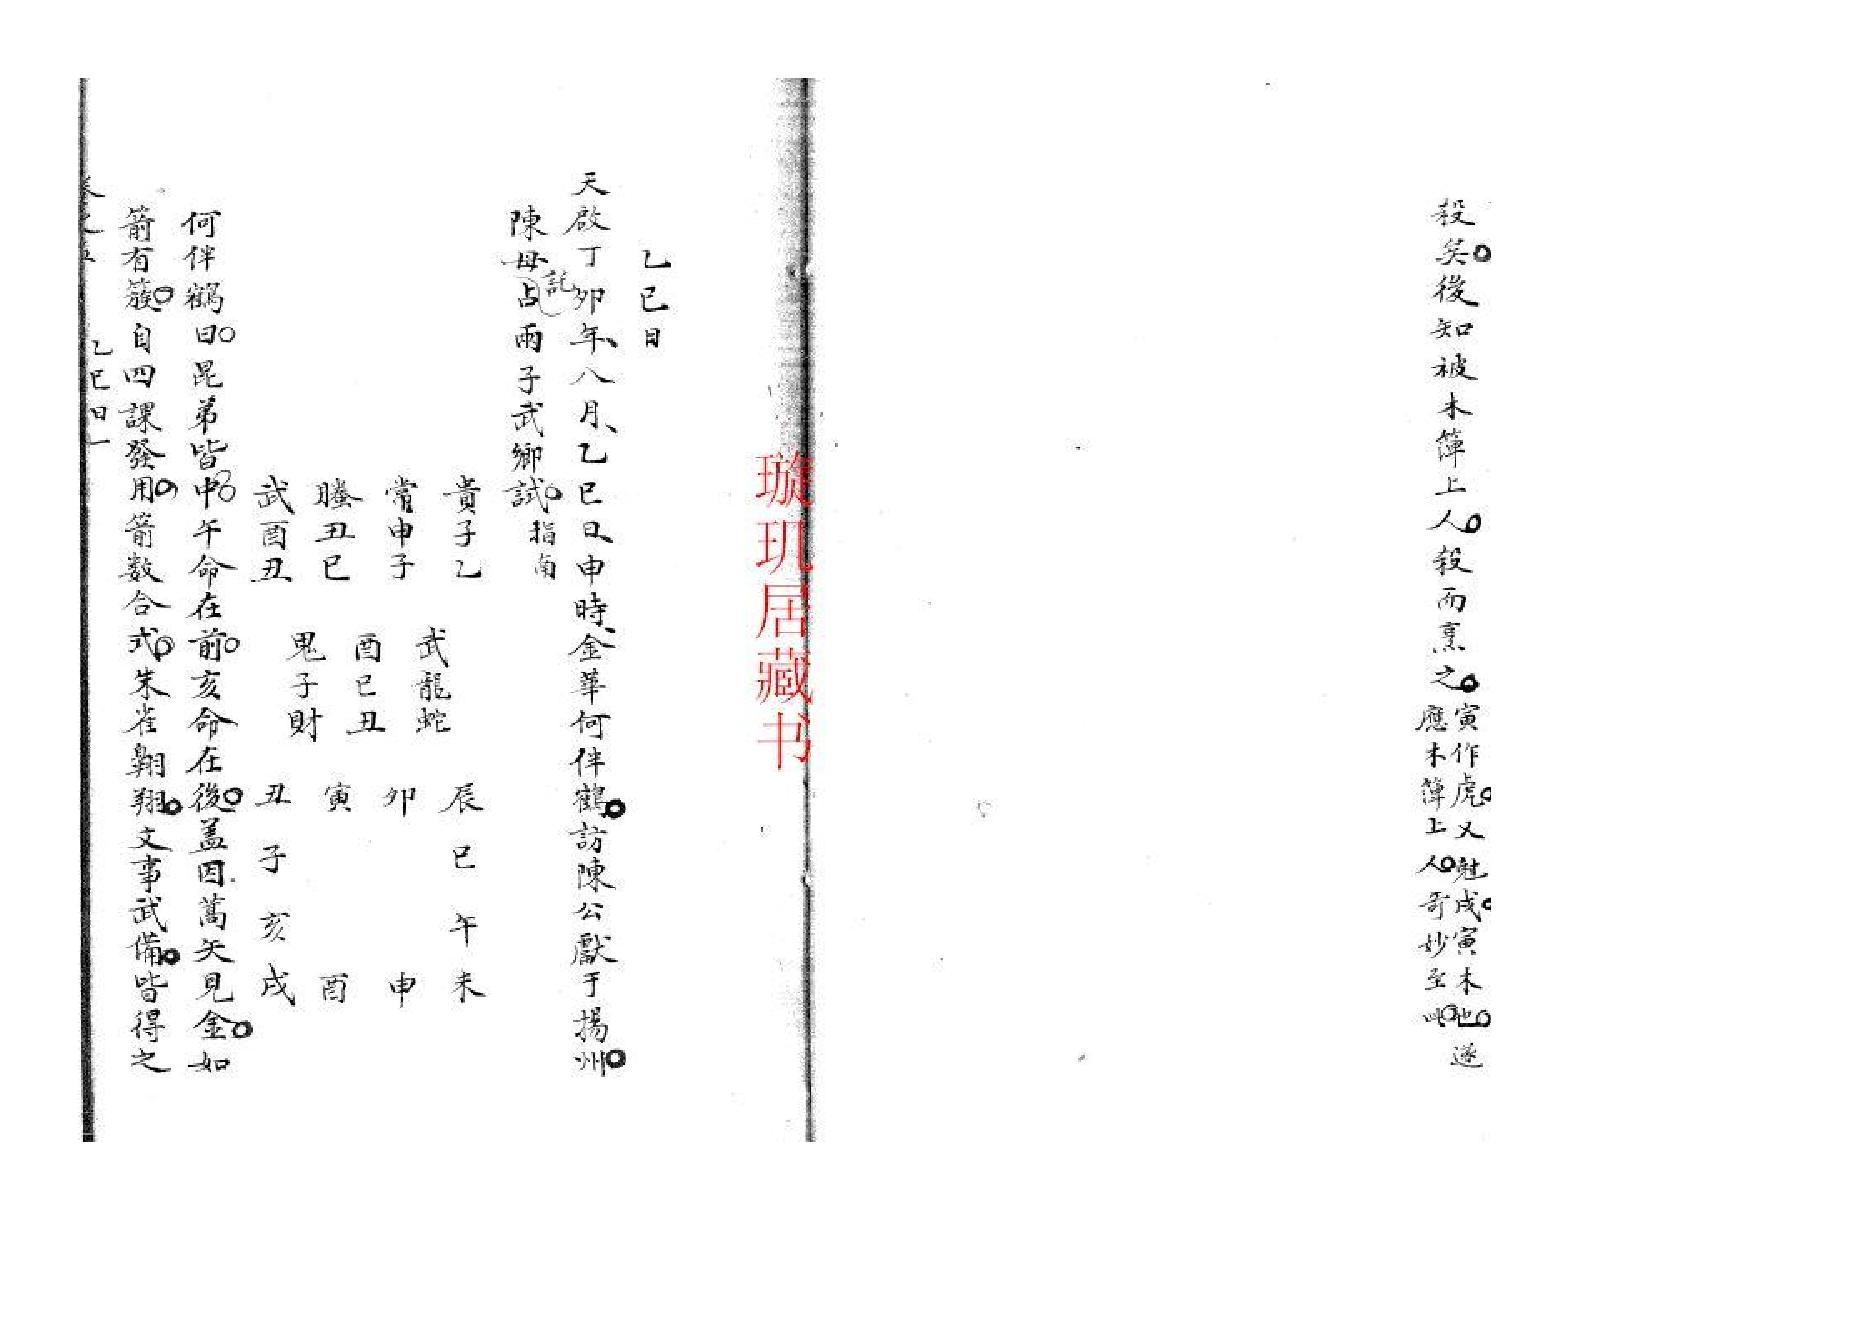 殺矣後知被木簰上人殺而烹之
寅作虎又尅戌寅木也遂
應木簰上人奇妙至此
璇玑居藏书
乙巳日
天啟丁卯年八月乙巳日申時金華何伴鶴訪陳公獻于揚州
陳母託占兩子武鄉試 指南
貴子乙
常申子
螣丑巳
武酉丑
武龍蛇
酉巳丑
鬼子財
辰巳午未
卯 申
寅 酉
丑子亥戌
何伴鶴曰昆弟皆中午命在前亥命在後蓋因蒿矢見金如
箭有簇自四課發用箭数合式朱雀翱翔文事武備皆得之
乙巳日一